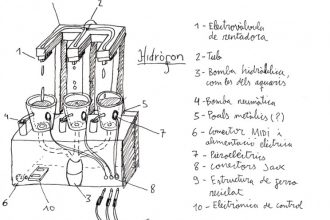 Hidrògon
1 - Electrovàlvula
de rentadora
2 - Tub
3 - Bomba hidràulica,
com les dels aquaris
4 - Bomba neumàtica
5 - Poals metàlics (?)
6 - conector MIDI i
alimentació elèctrica
7 - Piezoelèctrics
8 - conectors Jack
9 - Estructura de ferro
reciclat
10 - Electrònica de control
1
2
3
4
5
6
7
8
9
10